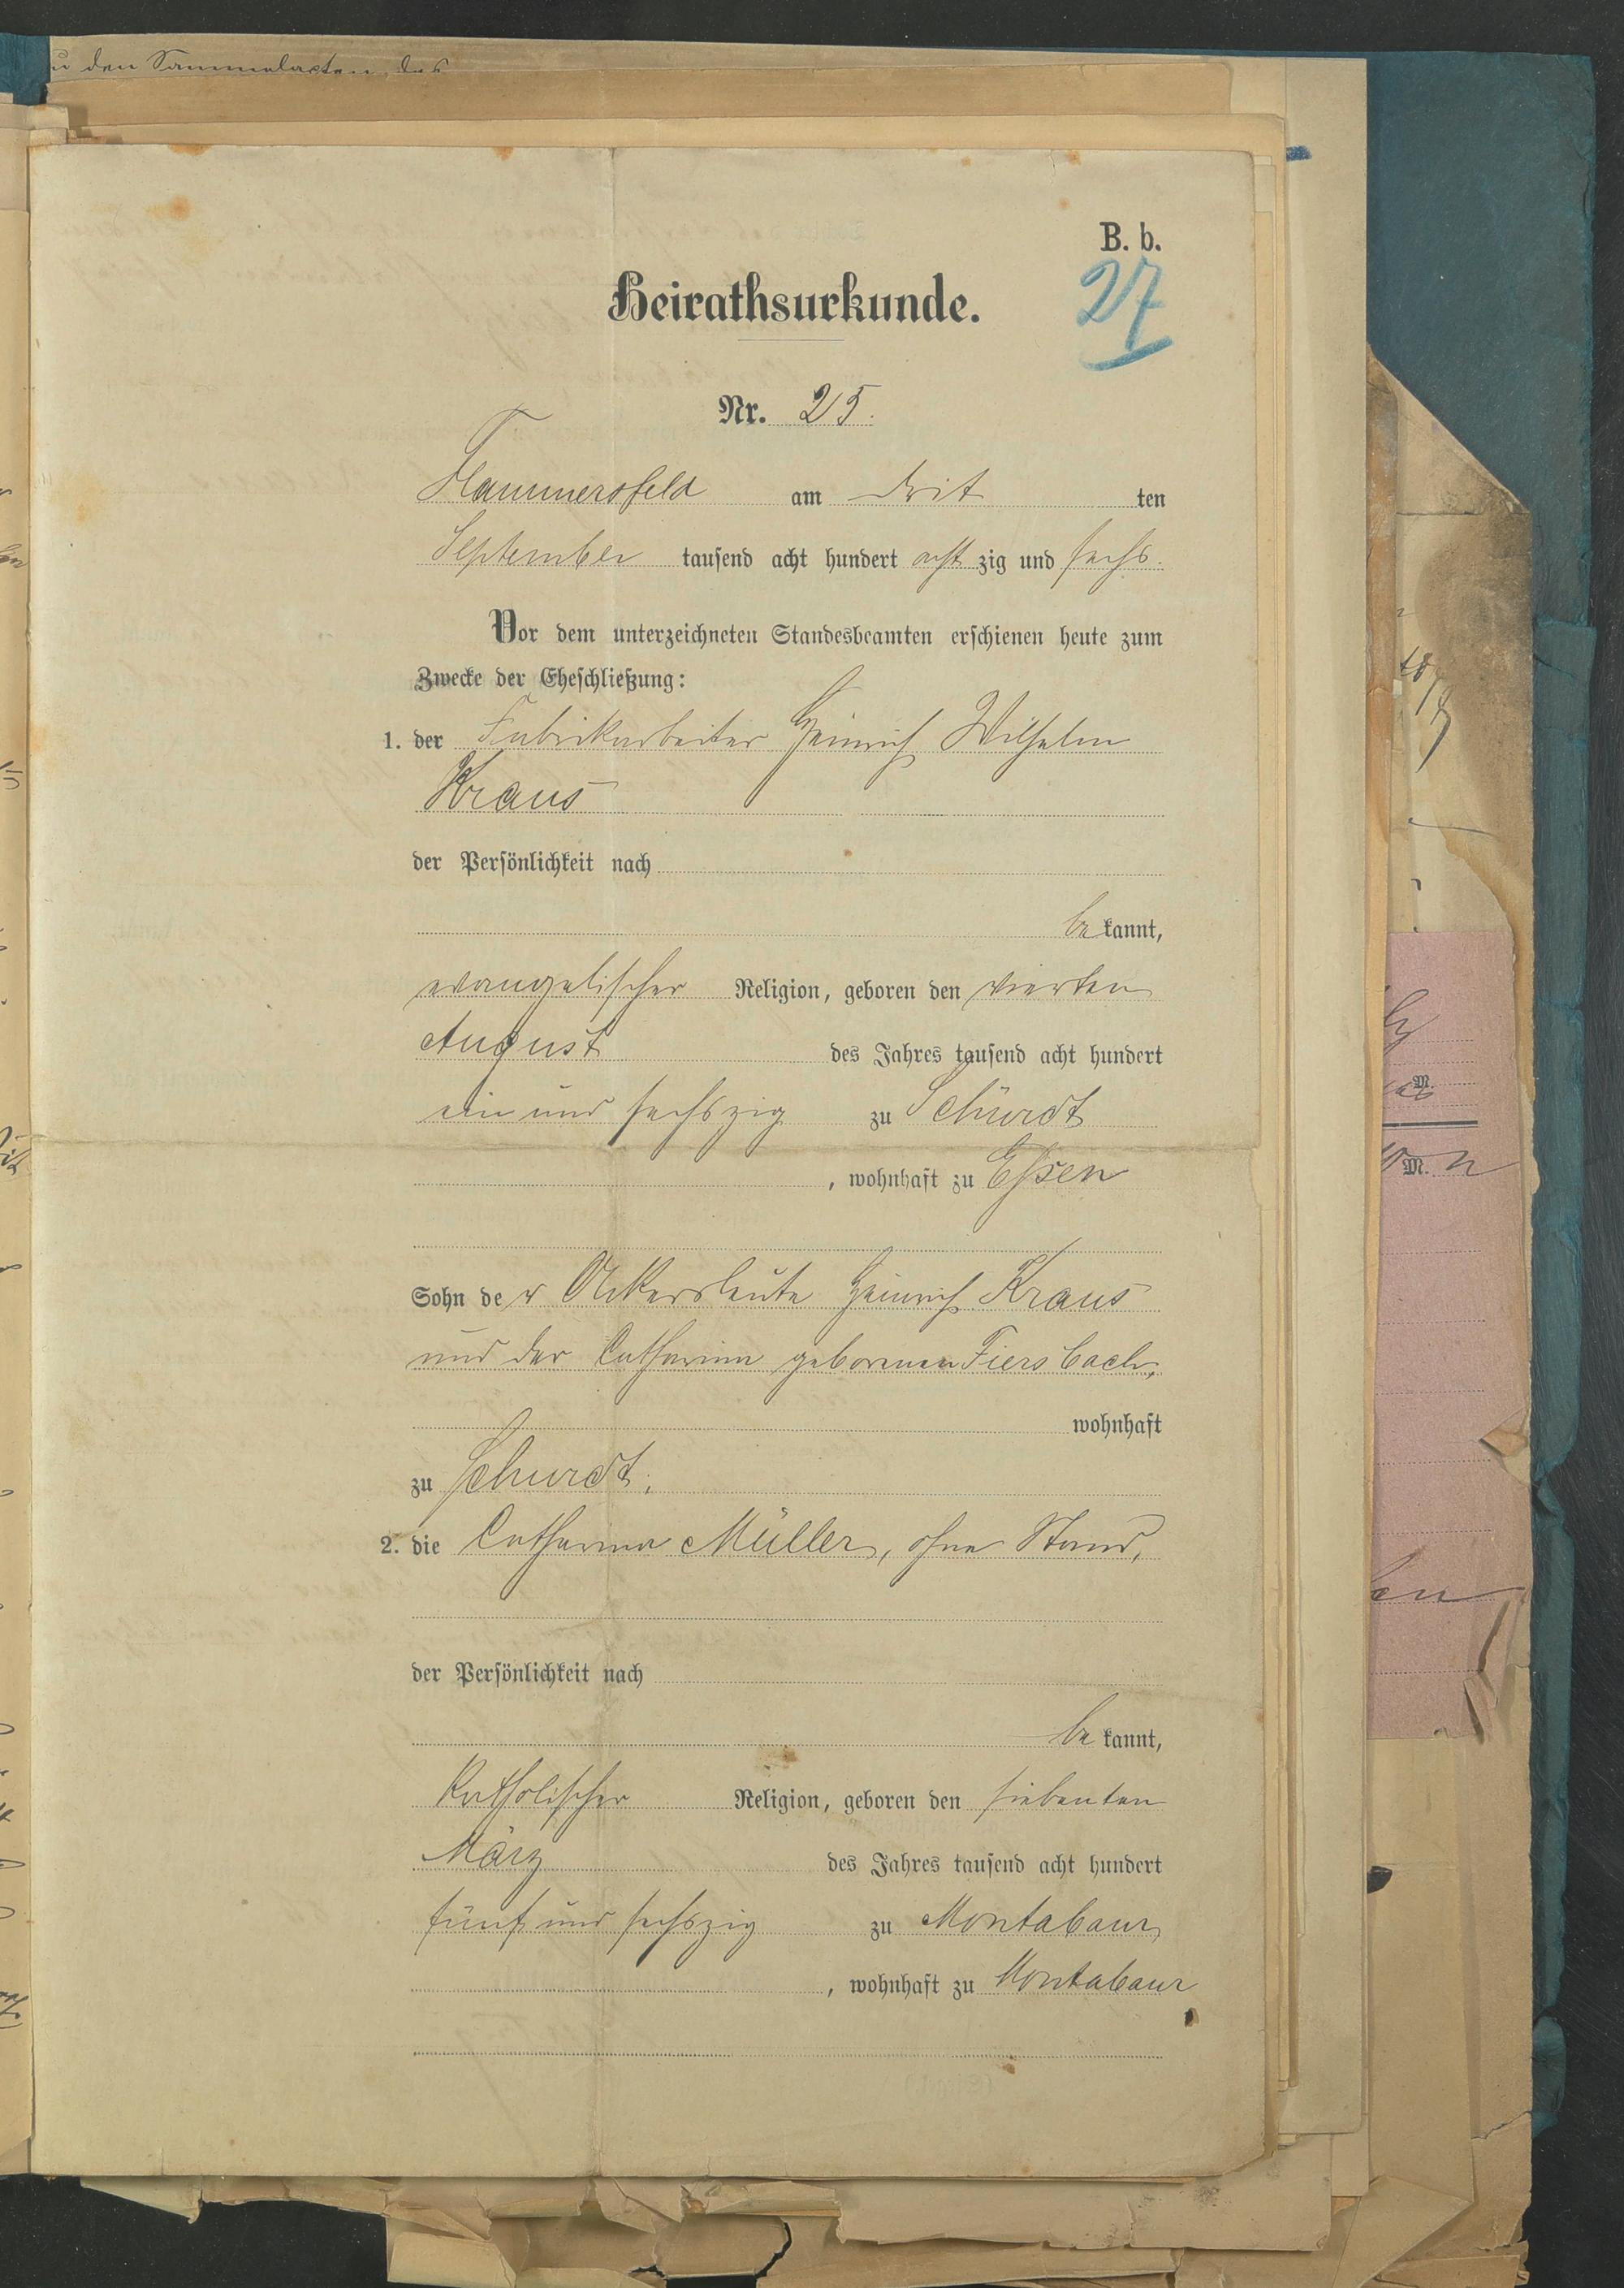 u den Sammelacten des
B. b.
27
Heirathsurkunde.
Nr. 25.
Flammersfeld am drit ten
September tausend acht hundert acht zig und sechs.
Vor dem unterzeichneten Standesbeamten erschienen heute zum
Zwecke der Eheschließung:
1. der Fabrikarbeiter Heinrich Wilhelm
Kraus
der Persönlichkeit nach
be kannt,
evangelischer Religion, geboren den vierten
August des Jahres tausend acht hundert
ein und sechszig zu Schürdt
, wohnhaft zu Essen
Sohn de r Ackersleute Heinrich Kraus
und der Catharina geborenen Fiersbach,
wohnhaft
zu Schurdt.
2. die Catharina Müller, ohne Stand,
der Persönlichkeit nach
be kannt,
katholischer Religion, geboren den siebenten
März des Jahres tausend acht hundert
fünf und sechszig zu Montabaur,
, wohnhaft zu Montabaur
M.
M.
en